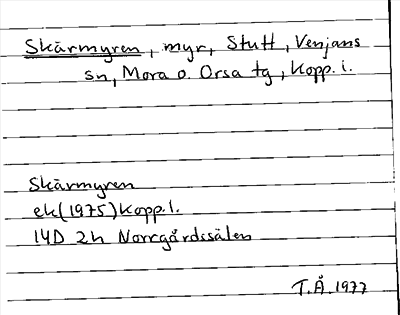 Skärmyren, myr, Stutt, Venjans
sn, Mora o. Orsa tg, Kopp. l.
Skärmyren
ek(1975) Kopp. l.
14D 2h Norrgårdssälen
T.Å. 1977